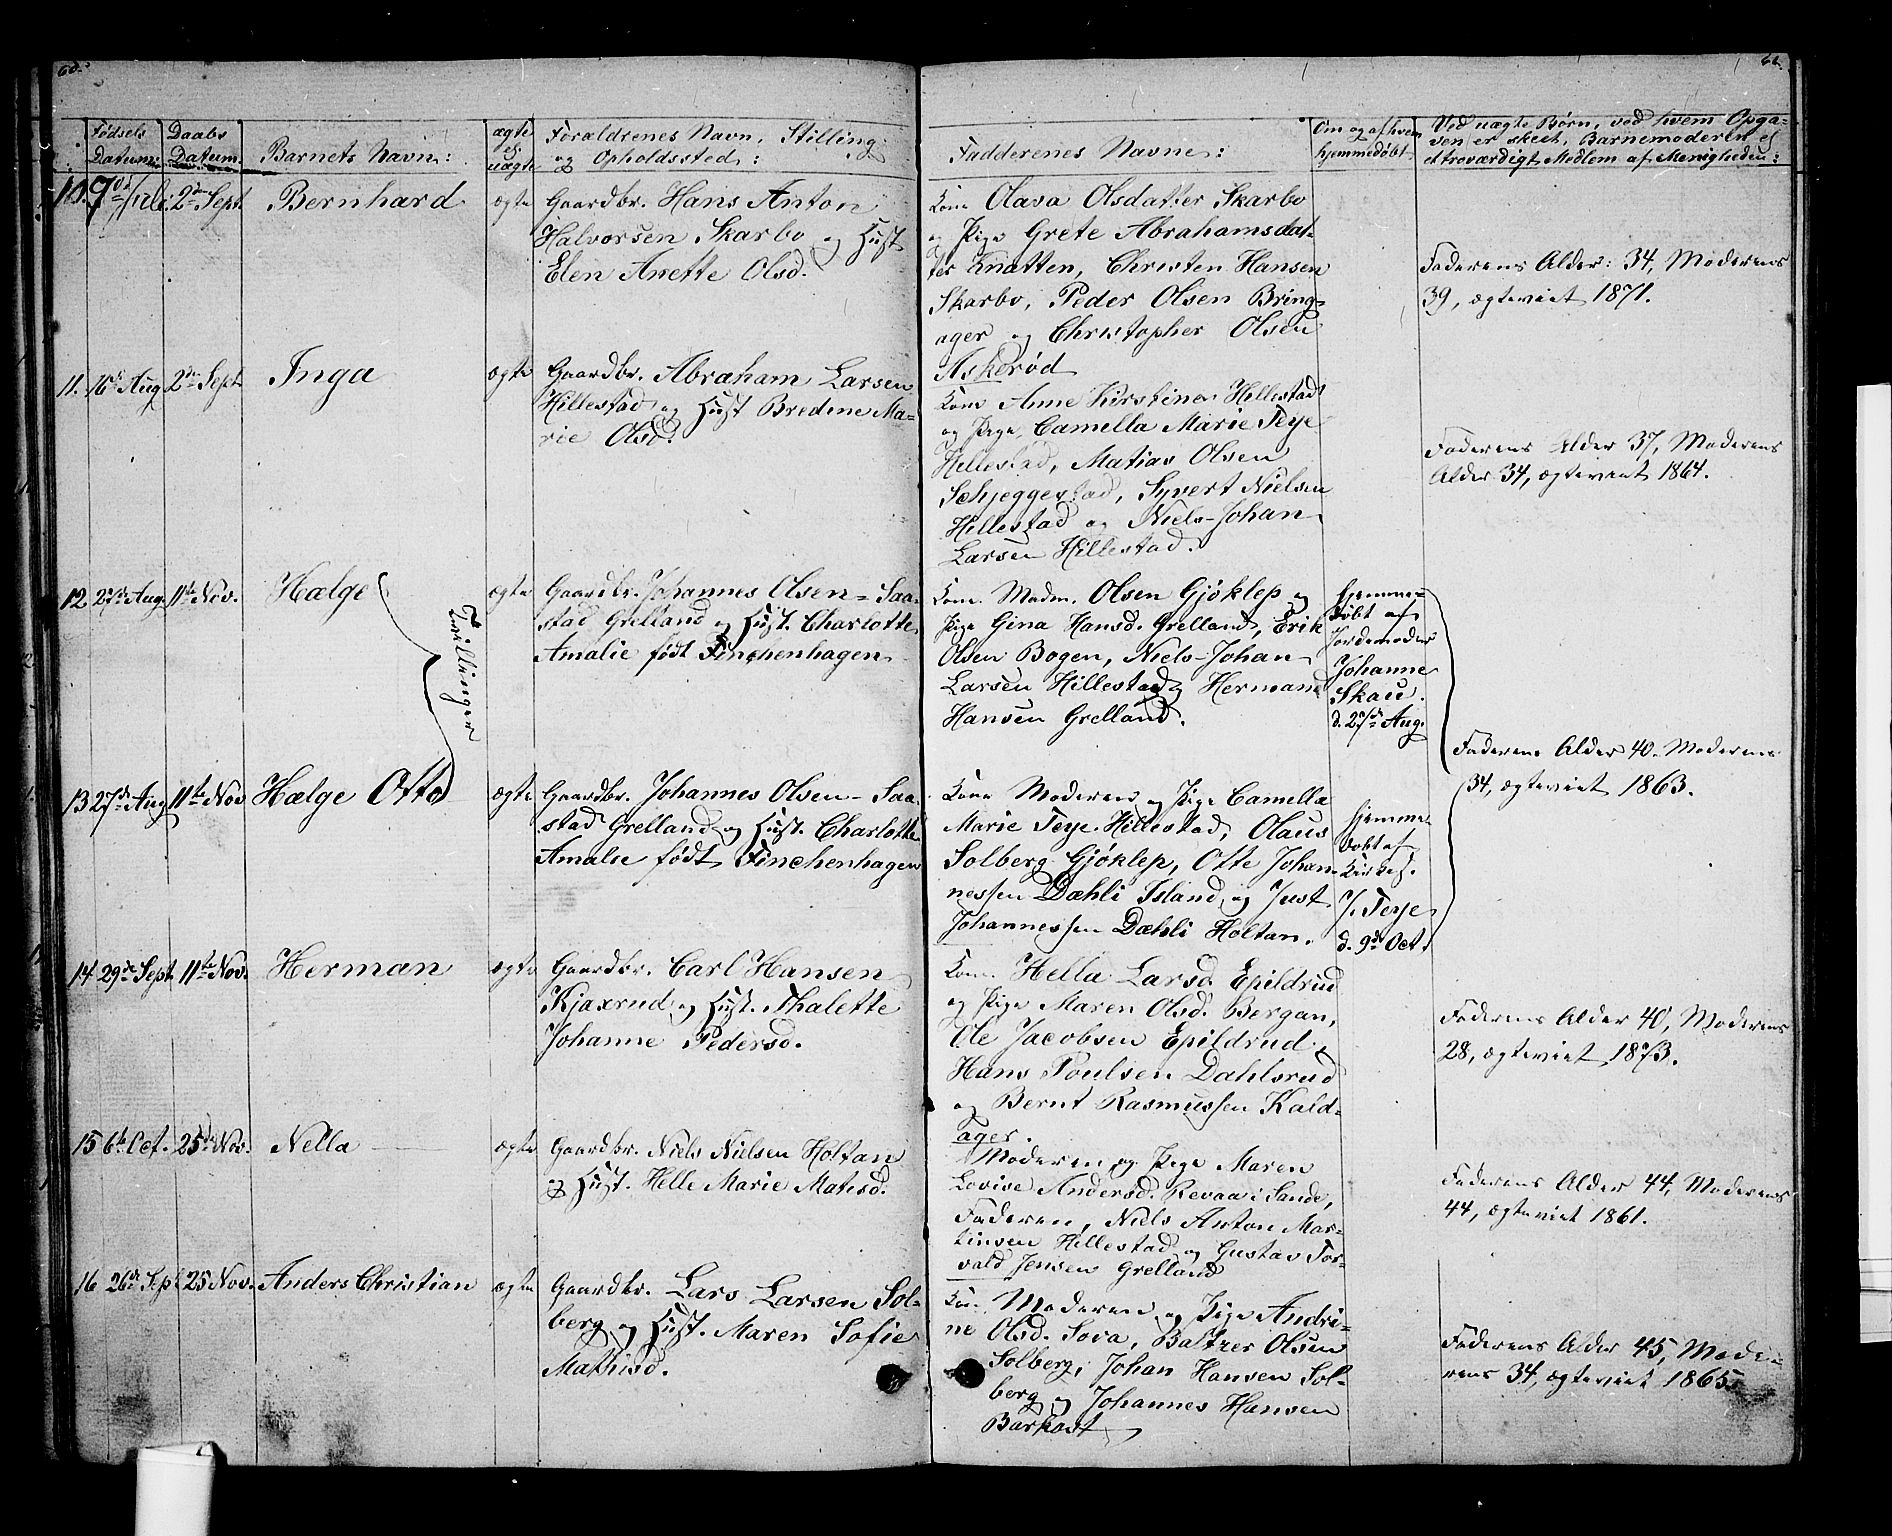 60.
Fødsels Datum:
Daabs Datum.
Barnets Navn:
ægte el. uægte
Forældrenes Navn, Stilling
og Opholdssted:
10. 7de Juli. 2den Sept. Bernhard ægte Gaardbr. Hans Anton
Halvorsen Skarbo og Hust.
Elen Anette Olsd.
11. 16de Aug. 2den Sept. Inga ægte Gaardbr. Abraham Larsen
Hillestad og Hust. Bredine Ma-
rie Olsd.
12 27de Aug. 11te Nov. Hælge ægte Gaardbr. Johannes Olsen-Saa-
stad Grelland og Hust. Charlotte
Amalie født Finchenhagen
Tvillinger
13 27de Aug 11te Nov Hælge Otto ægte Gaardbr. Johannes Olsen-Saa-
stad Grelland og Hust. Charlotte
Amalie født Finchenhagen
14 29de Sept. 11te Nov. Herman ægte Gaardbr. Carl Hansen
Kjaxrud og Hust. Thalette
Johanne Pedersd.
15 6te Oct. 25de Nov. Nella ægte Gaardbr. Niels Nielsen Holtan
og Hust. Helle Marie Matisd.
16 26de Sept 25 Nov. Anders Christian ægte Gaardbr. Lars Larsen Sol-
berg og Hust. Maren Sofie
Mathisd.
61.
Faddernes Navne:
Om og af hvem
hjemmedøbt
Ved uægte Børn, ved hvem Opga-
ven er skeet, Barnemoderen el
et troværdigt Medlem af Menigheden:
Kone Olava Olsdatter Skarbo
og Pige Grete Abrahamsdat-
ter Knatten, Christen Hansen
Skarbo, Peder Olsen Bring-
ager og Christopher Olsen
Askerød
Faderens Alder: 34, Moderens
39, ægteviet 1871.
Kone Anne Kirstine Hillestad
og Pige Camella Marie Teye
Hillestad, Matias Olsen
Schjeggestad, Syvert Nielsen
Hillestad og Niels-Johan
Larsen Hillestad.
Faderens Alder 37, Moderens
Alder 34, ægteviet 1864.
Kone Madm. Olsen Gjøklep og
Pige Gina Hansd. Grelland, Erik
Olsen Bogen, Niels-Johan
Larsen Hillestad og Herman
Hansen Grelland.
Hjemme-
døbt af
Jordemoder
Johanne
Skau.
d. 27de Aug.
Faderens Alder 40. Moderens
34, ægteviet 1863.
Kone Moderen og Pige Camella
Marie Teye Hillestad, Olaus
Solberg Gjøklep, Otte Johan-
nessen Dæhli Island og Just
Johannessen Dæhli Holtan.
Hjemme-
døbt af
Kirkes.
J. Teye
d. 9de Oct.
Kone Hella Larsd. Epildrud
og Pige Maren Olsd. Bergan,
Ole Jacobsen Epildrud,
Hans Poulsen Dahlsrud
og Bernt Rasmussen Kald-
ager.
Faderens Alder 40, Moderens
28, ægteviet 1873.
Moderen og Pige Maren
Lovise Andersd. Revaa i Sande,
Faderen, Niels Anton Mar-
tinsen Hillestad og Gustav Tor-
vald Jensen Grelland
Faderens Alder 44, Moderens
44, ægteviet 1861.
Kone Moderen og Pige Andri-
ne Olsd. Sova, Baltzer Olsen
Solberg, Johan Hansen Sol-
berg og Johannes Hansen
Barkost
Faderens Alder 45, Mode-
rens 34, ægteviet 1865.